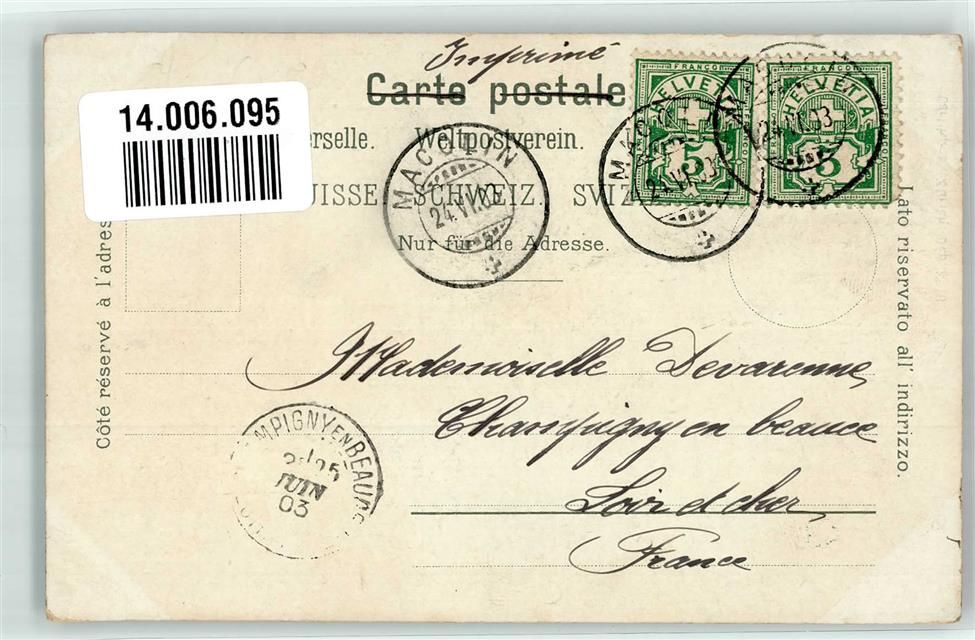 Imprimé
Carte postale
14.006.095
erselle. Weltpostverein.
UISSE. SCHWEIZ. SVIZ
Nur für die Adresse.
FRANCO
HELVETIA
5
FRANCO
HELVETIA
5
MACOLIN
24.VI.03
Côté réservé à l'adres
Lato riservato all' indirizzo.
Mademoiselle Devarenne
Champigny en beauce
Loir et cher
France
MPIGNY EN BEAUCE
25
JUIN
03